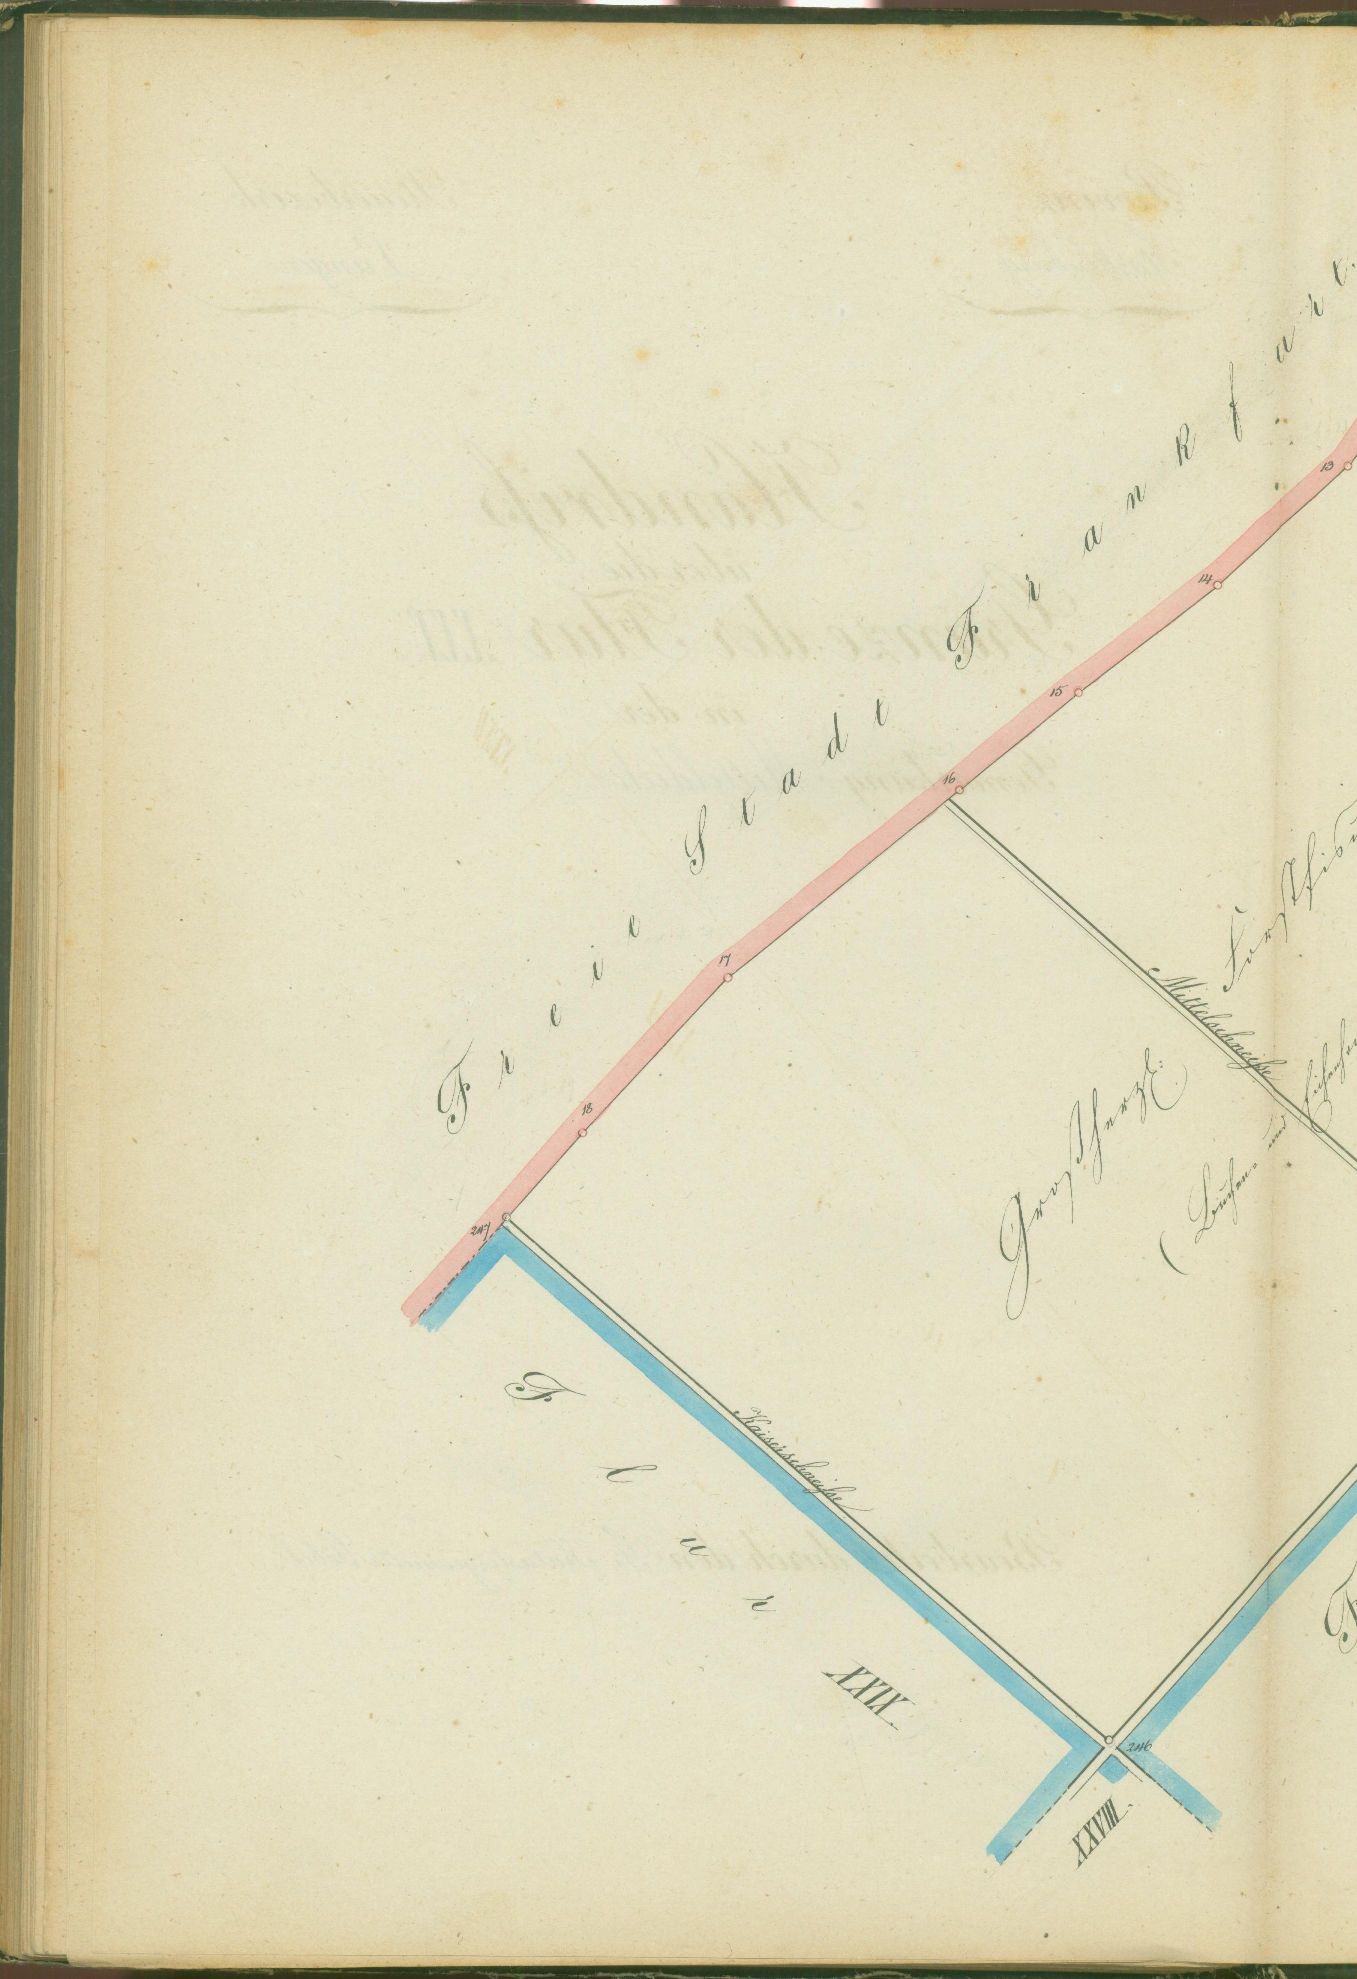 Freie Stadt Frankfurt.
13
14
15
16
17
18
247
Mittelschneiße
Forstfisc
Großherzl:
( Buchen- und Eichenho
Kaiserschneiße
Flur XXIX.
246
XXVIII.
F